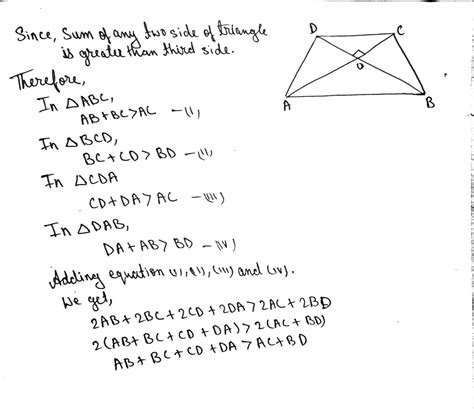 Since, Sum of any two side of triangle
is greater than third side.
Therefore,
In △ABC,
AB+BC>AC —(i)
In △BCD,
BC+CD>BD —(ii)
In △CDA
CD+DA>AC —(iii)
In △DAB,
DA+AB>BD —(iv)
Adding equation (i), (ii), (iii) and (iv).
We get,
2AB+2BC+2CD+2DA>2AC+2BD
2(AB+BC+CD+DA)>2(AC+BD)
AB+BC+CD+DA>AC+BD
D C
O
A B